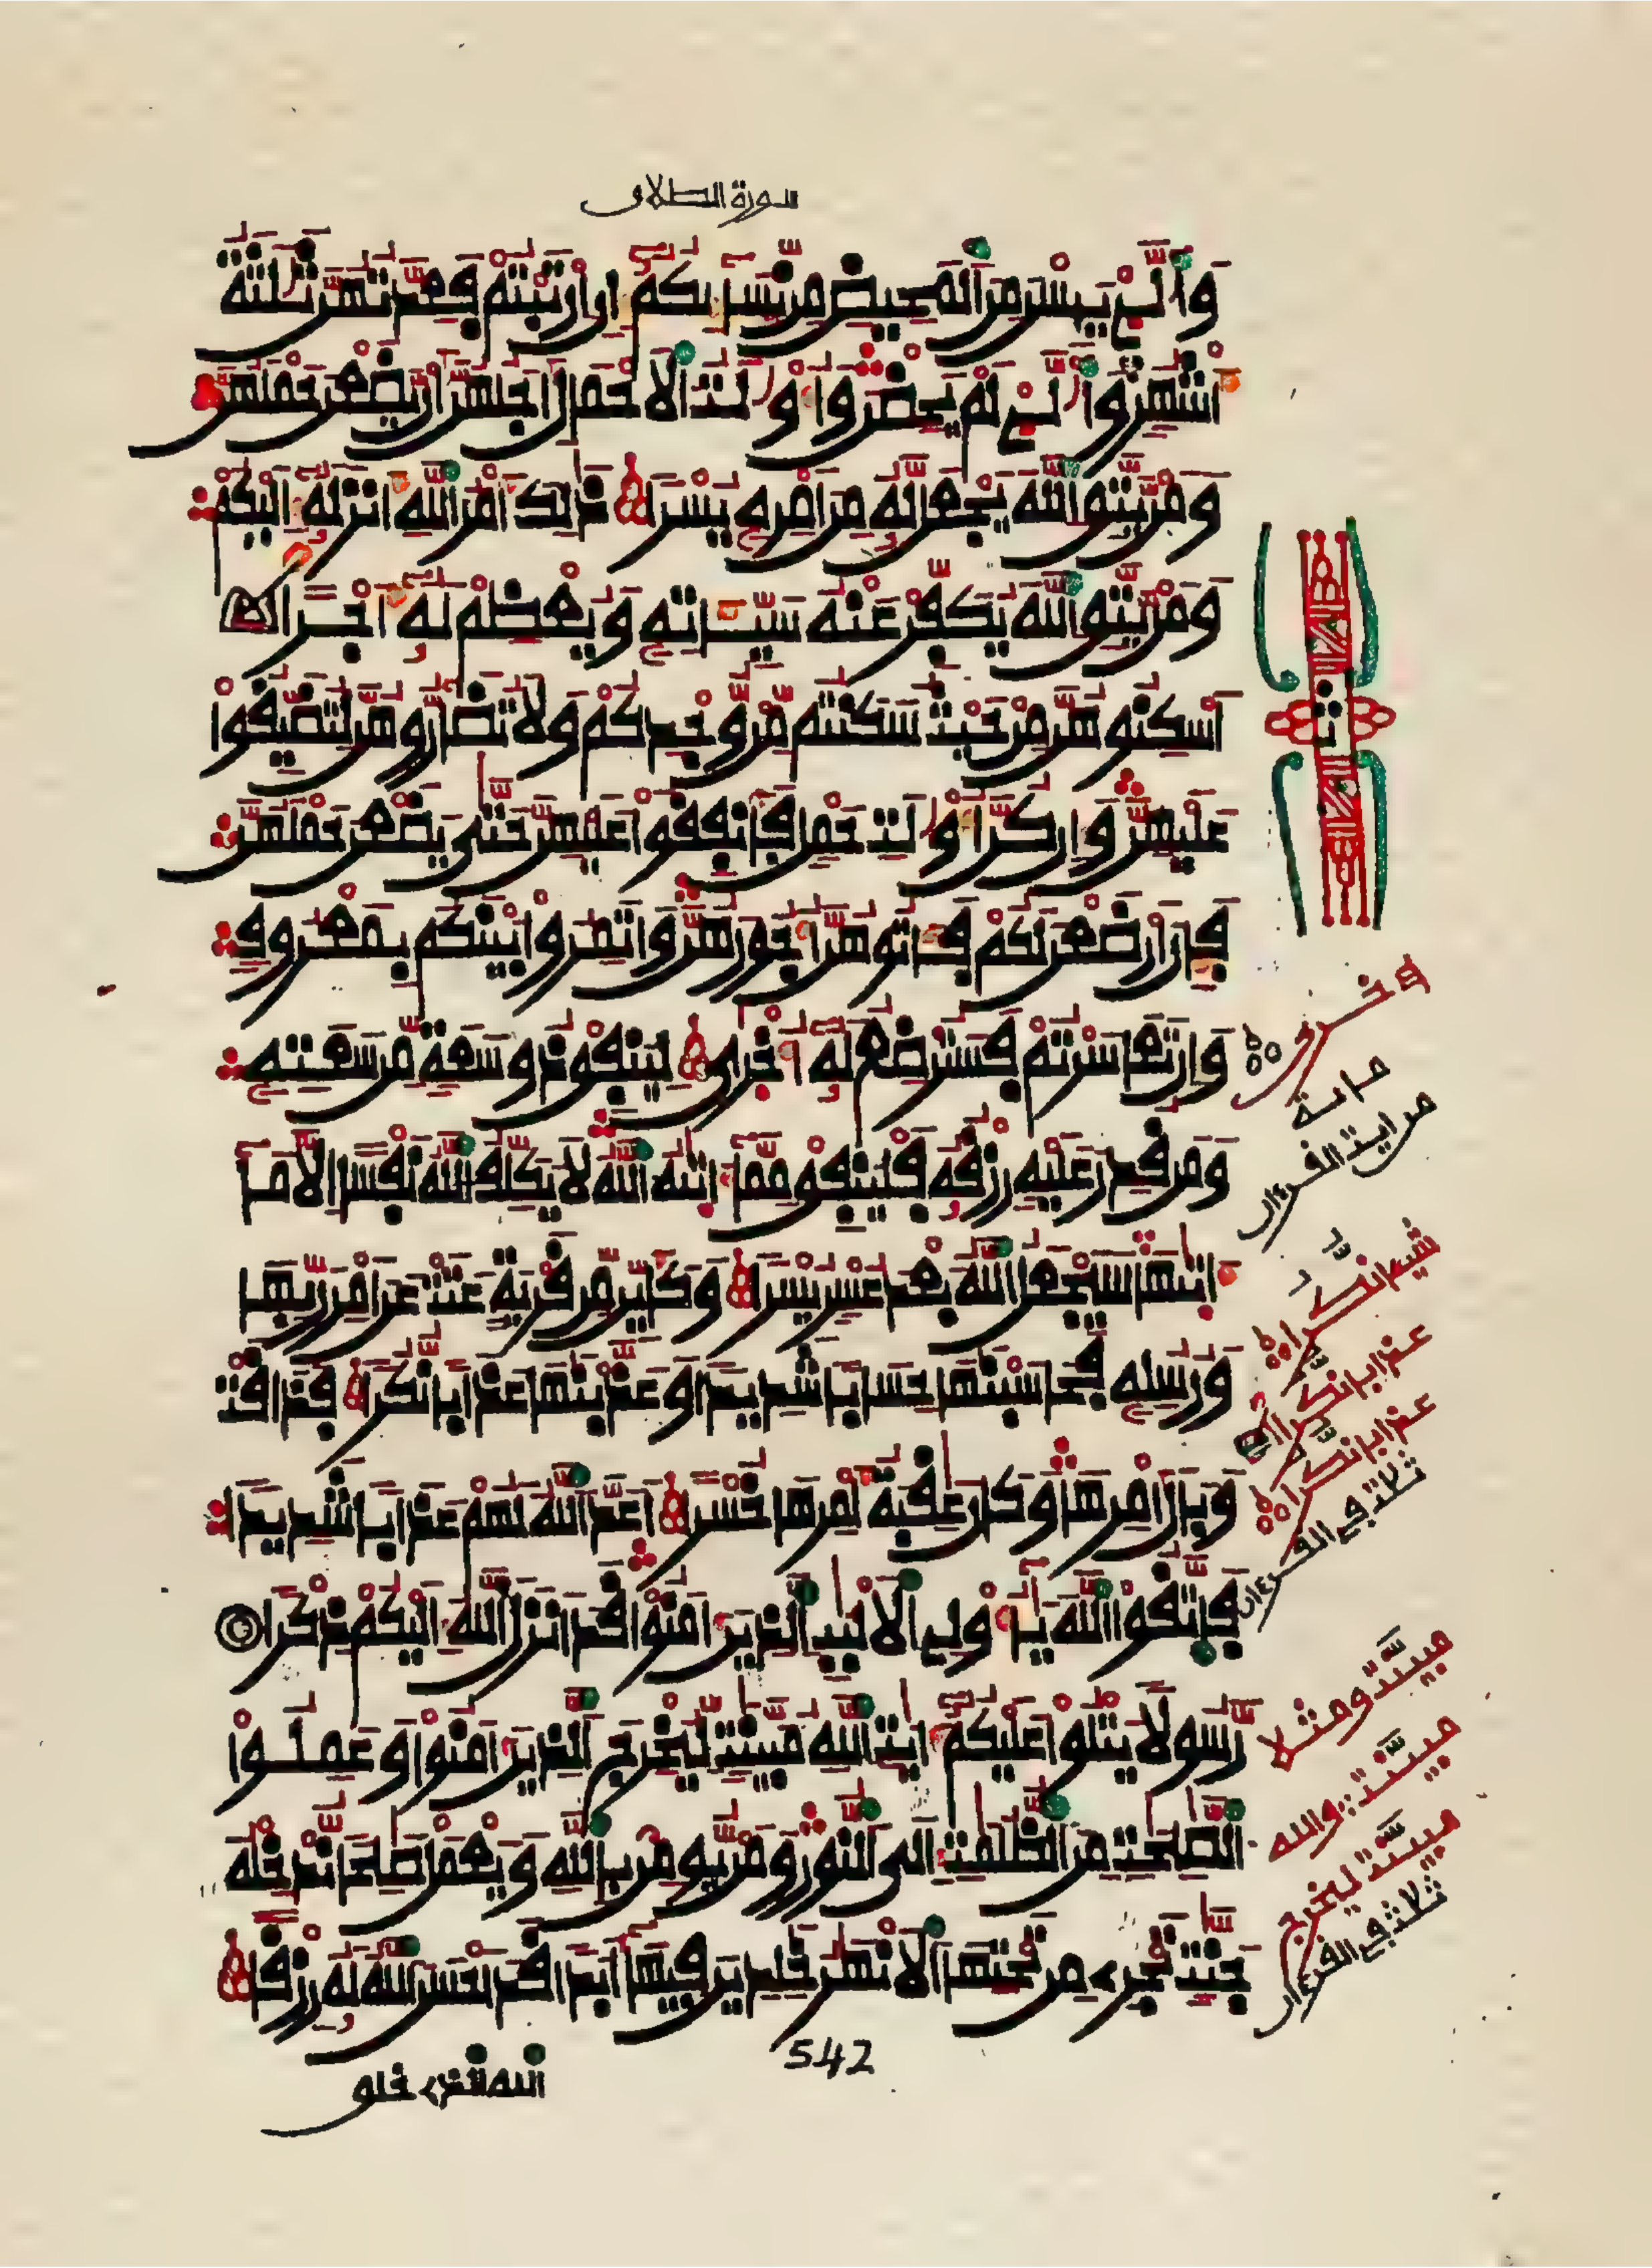 سورة الطلاق
وَالّٰۓ يَئِسْنَ مِنَ الْمَحِيضِ مِن نِّسَآئِكُمُۥٓ إِنِ اِرْتَبْتُمْ فَعِدَّتُهُنَّ ثَلَٰثَةُ
أَشْهُرٖ وَالّٰۓ لَمْ يَحِضْنَ وَأُوْلَٰتُ الْأَحْمَالِ أَجَلُهُنَّ أَنْ يَّضَعْنَ حَمْلَهُنَّ
وَمَنْ يَّتَّقِ اللَّهَ يَجْعَل لَّهُۥ مِنْ أَمْرِهِۦ يُسْرًا ذَٰلِكَ أَمْرُ اللَّهِ أَنزَلَهُۥٓ إِلَيْكُمْ
وَمَنْ يَّتَّقِ اللَّهَ يُكَفِّرْ عَنْهُ سَيِّـَٔاتِهِۦ وَيُعْظِمْ لَهُۥٓ أَجْرًا
أَسْكِنُوهُنَّ مِنْ حَيْثُ سَكَنتُم مِّنْ وُّجْدِكُمْ وَلَا تُضَآرُّوهُنَّ لِتُضَيِّقُوا
عَلَيْهِنَّ وَإِن كُنَّ أُوْلَٰتِ حَمْلٖ فَأَنفِقُوا عَلَيْهِنَّ حَتَّىٰ يَضَعْنَ حَمْلَهُنَّ
فَإِنْ أَرْضَعْنَ لَكُمْ فَـَٔاتُوهُنَّ أُجُورَهُنَّ وَاتَمِرُوا بَيْنَكُم بِمَعْرُوفٖ
وَإِن تَعَاسَرْتُمْ فَسَتُرْضِعُ لَهُۥٓ أُخْرَىٰ لِيُنفِقْ ذُو سَعَةٖ مِّن سَعَتِهِۦ
وَمَن قُدِرَ عَلَيْهِ رِزْقُهُۥ فَلْيُنفِقْ مِمَّآ ءَاتَىٰهُ اللَّهُ لَا يُكَلِّفُ اللَّهُ نَفْسًا إِلَّا مَآ
ءَاتَىٰهَا سَيَجْعَلُ اللَّهُ بَعْدَ عُسْرٖ يُسْرًا وَكَأَيِّن مِّن قَرْيَةٍ عَتَتْ عَنْ أَمْرِ رَبِّهَا
وَرُسُلِهِۦ فَحَاسَبْنَٰهَا حِسَابًا شَدِيدًا وَعَذَّبْنَٰهَا عَذَابًا نُّكُرًا فَذَاقَتْ
وَبَالَ أَمْرِهَا وَكَانَ عَٰقِبَةُ أَمْرِهَا خُسْرًا أَعَدَّ اللَّهُ لَهُمْ عَذَابًا شَدِيدًا
فَاتَّقُوا اللَّهَ يَٰٓأُوْلِي الْأَلْبَٰبِ الَّذِينَ ءَامَنُوا قَدْ أَنزَلَ اللَّهُ إِلَيْكُمْ ذِكْرًا
رَّسُولًا يَتْلُوا عَلَيْكُمُۥٓ ءَايَٰتِ اللَّهِ مُبَيَّنَٰتٖ لِّيُخْرِجَ الَّذِينَ ءَامَنُوا وَعَمِلُوا
الصَّٰلِحَٰتِ مِنَ الظُّلُمَٰتِ إِلَى النُّورِ وَمَنْ يُّومِنۢ بِاللَّهِ وَيَعْمَلْ صَٰلِحًا نُّدْخِلْهُ
جَنَّٰتٖ تَجْرِي مِن تَحْتِهَا الْأَنْهَٰرُ خَٰلِدِينَ فِيهَآ أَبَدًا قَدْ أَحْسَنَ اللَّهُ لَهُۥ رِزْقًا
542
الله الذي خلق
ث
مائة
من ايت القرءان
شيئا نكرا
عذابا نكرا
عذابا نكرا
ثلاثة في القرءان
مبينت ومثلا
مبينت والله
مبينت ليخرج
ثلاثة في القرءان